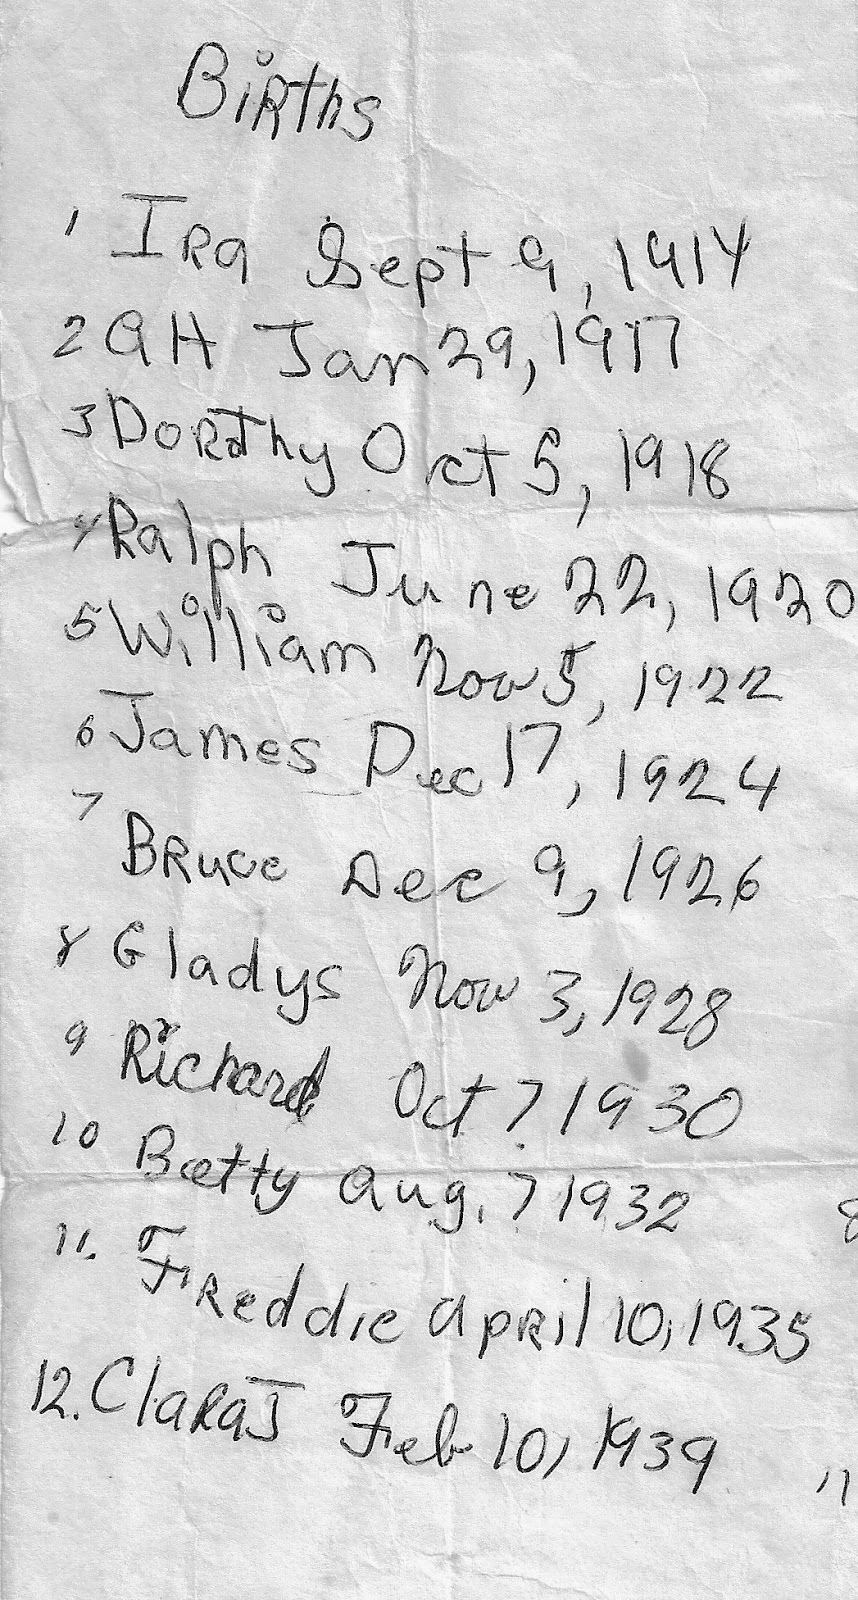 Births
1 Ira Sept 9, 1914
2 AH Jan 29, 1917
3 Dorothy Oct 5, 1918
4 Ralph June 22, 1920
5 William Nov 5, 1922
6 James Dec 17, 1924
7
Bruce Dec 9, 1926
8 Gladys Nov 3, 1928
9 Richard Oct 7 1930
10 Betty Aug. 7 1932
8
11. Freddie April 10, 1935
12. Clara J Feb 10, 1939
11